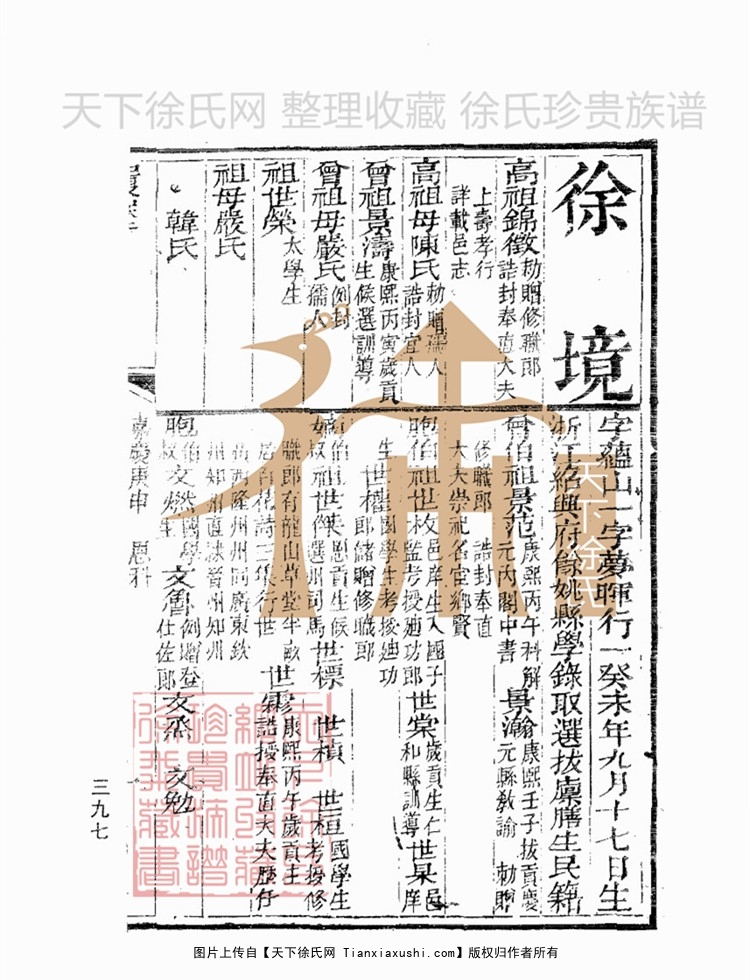 天下徐氏网 整理收藏 徐氏珍贵族谱
徐境
高祖錦徵 勅贈修職郎 誥封奉直大夫
上壽孝行
詳載邑志
高祖母陳氏 勅贈孺人 誥封宜人
曾祖景濤 康熙丙寅歲貢生候選訓導
曾祖母嚴氏 例封孺人
祖世榮 太學生
祖母嚴氏
韓氏
字蘊山一字夢暉行一癸未年九月十七日生
浙江紹興府餘姚縣學錄取選拔廩膳生民籍
曾伯祖景范 康熙丙午科解元內閣中書
景瀚 康熙壬子拔貢慶元縣教諭 勅贈
修職郎 誥封奉直
大夫崇祀名宦鄉賢
胞伯祖世枚 邑庠生入國子監考授廸功郎
世棠 歲貢生仁和縣訓導
世杲 邑庠生
世櫓 國學生考授廸功郎 贈修職郎
嫡伯叔祖世傑 恩貢生候選州司馬
世標
世楨
世桓 國學生考授修職郎有龍山草堂半畝居百花詩三集行世
世霖 康熙丙午歲貢主 誥授奉直大夫歷仔
西隆州州同廣東欽州知州直隸晉州知州
胞伯叔文燃 國學生
文雋 例贈登仕佐郎
文烝
文勉
嘉慶庚申 恩科
三九七
天下徐氏
图片上传自【天下徐氏网 Tianxiaxushi.com】版权归作者所有